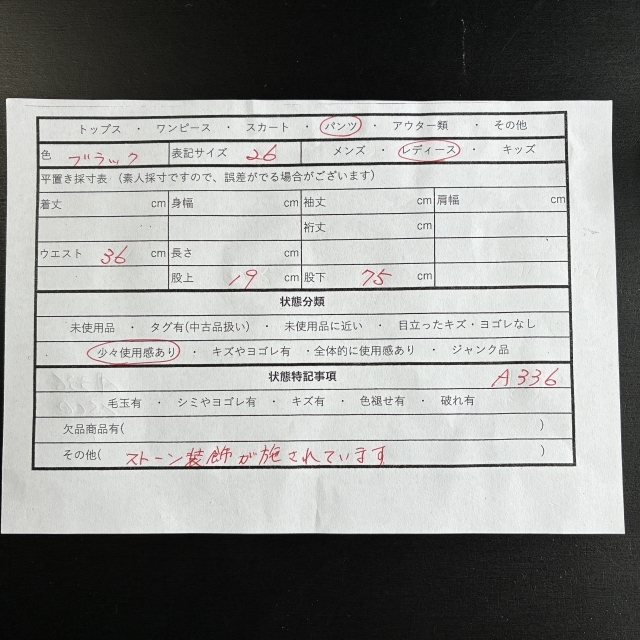 トップス ・ ワンピース ・ スカート ・ パンツ ・ アウター類 ・ その他
色 ブラック 表記サイズ 26 メンズ ・ レディース ・ キッズ
平置き採寸表（素人採寸ですので、誤差がでる場合がございます）
着丈 cm 身幅 cm 袖丈 cm 肩幅 cm
裄丈 cm
ウエスト 36 cm 長さ cm
股上 19 cm 股下 75 cm
状態分類
未使用品 ・ タグ有(中古品扱い) ・ 未使用品に近い ・ 目立ったキズ・ヨゴレなし
・ 少々使用感あり ・ キズやヨゴレ有 ・全体的に使用感あり ・ ジャンク品
状態特記事項 A336
毛玉有 ・ シミやヨゴレ有 ・ キズ有 ・ 色褪せ有 ・ 破れ有
欠品商品有( )
その他( ストーン装飾が施されています )